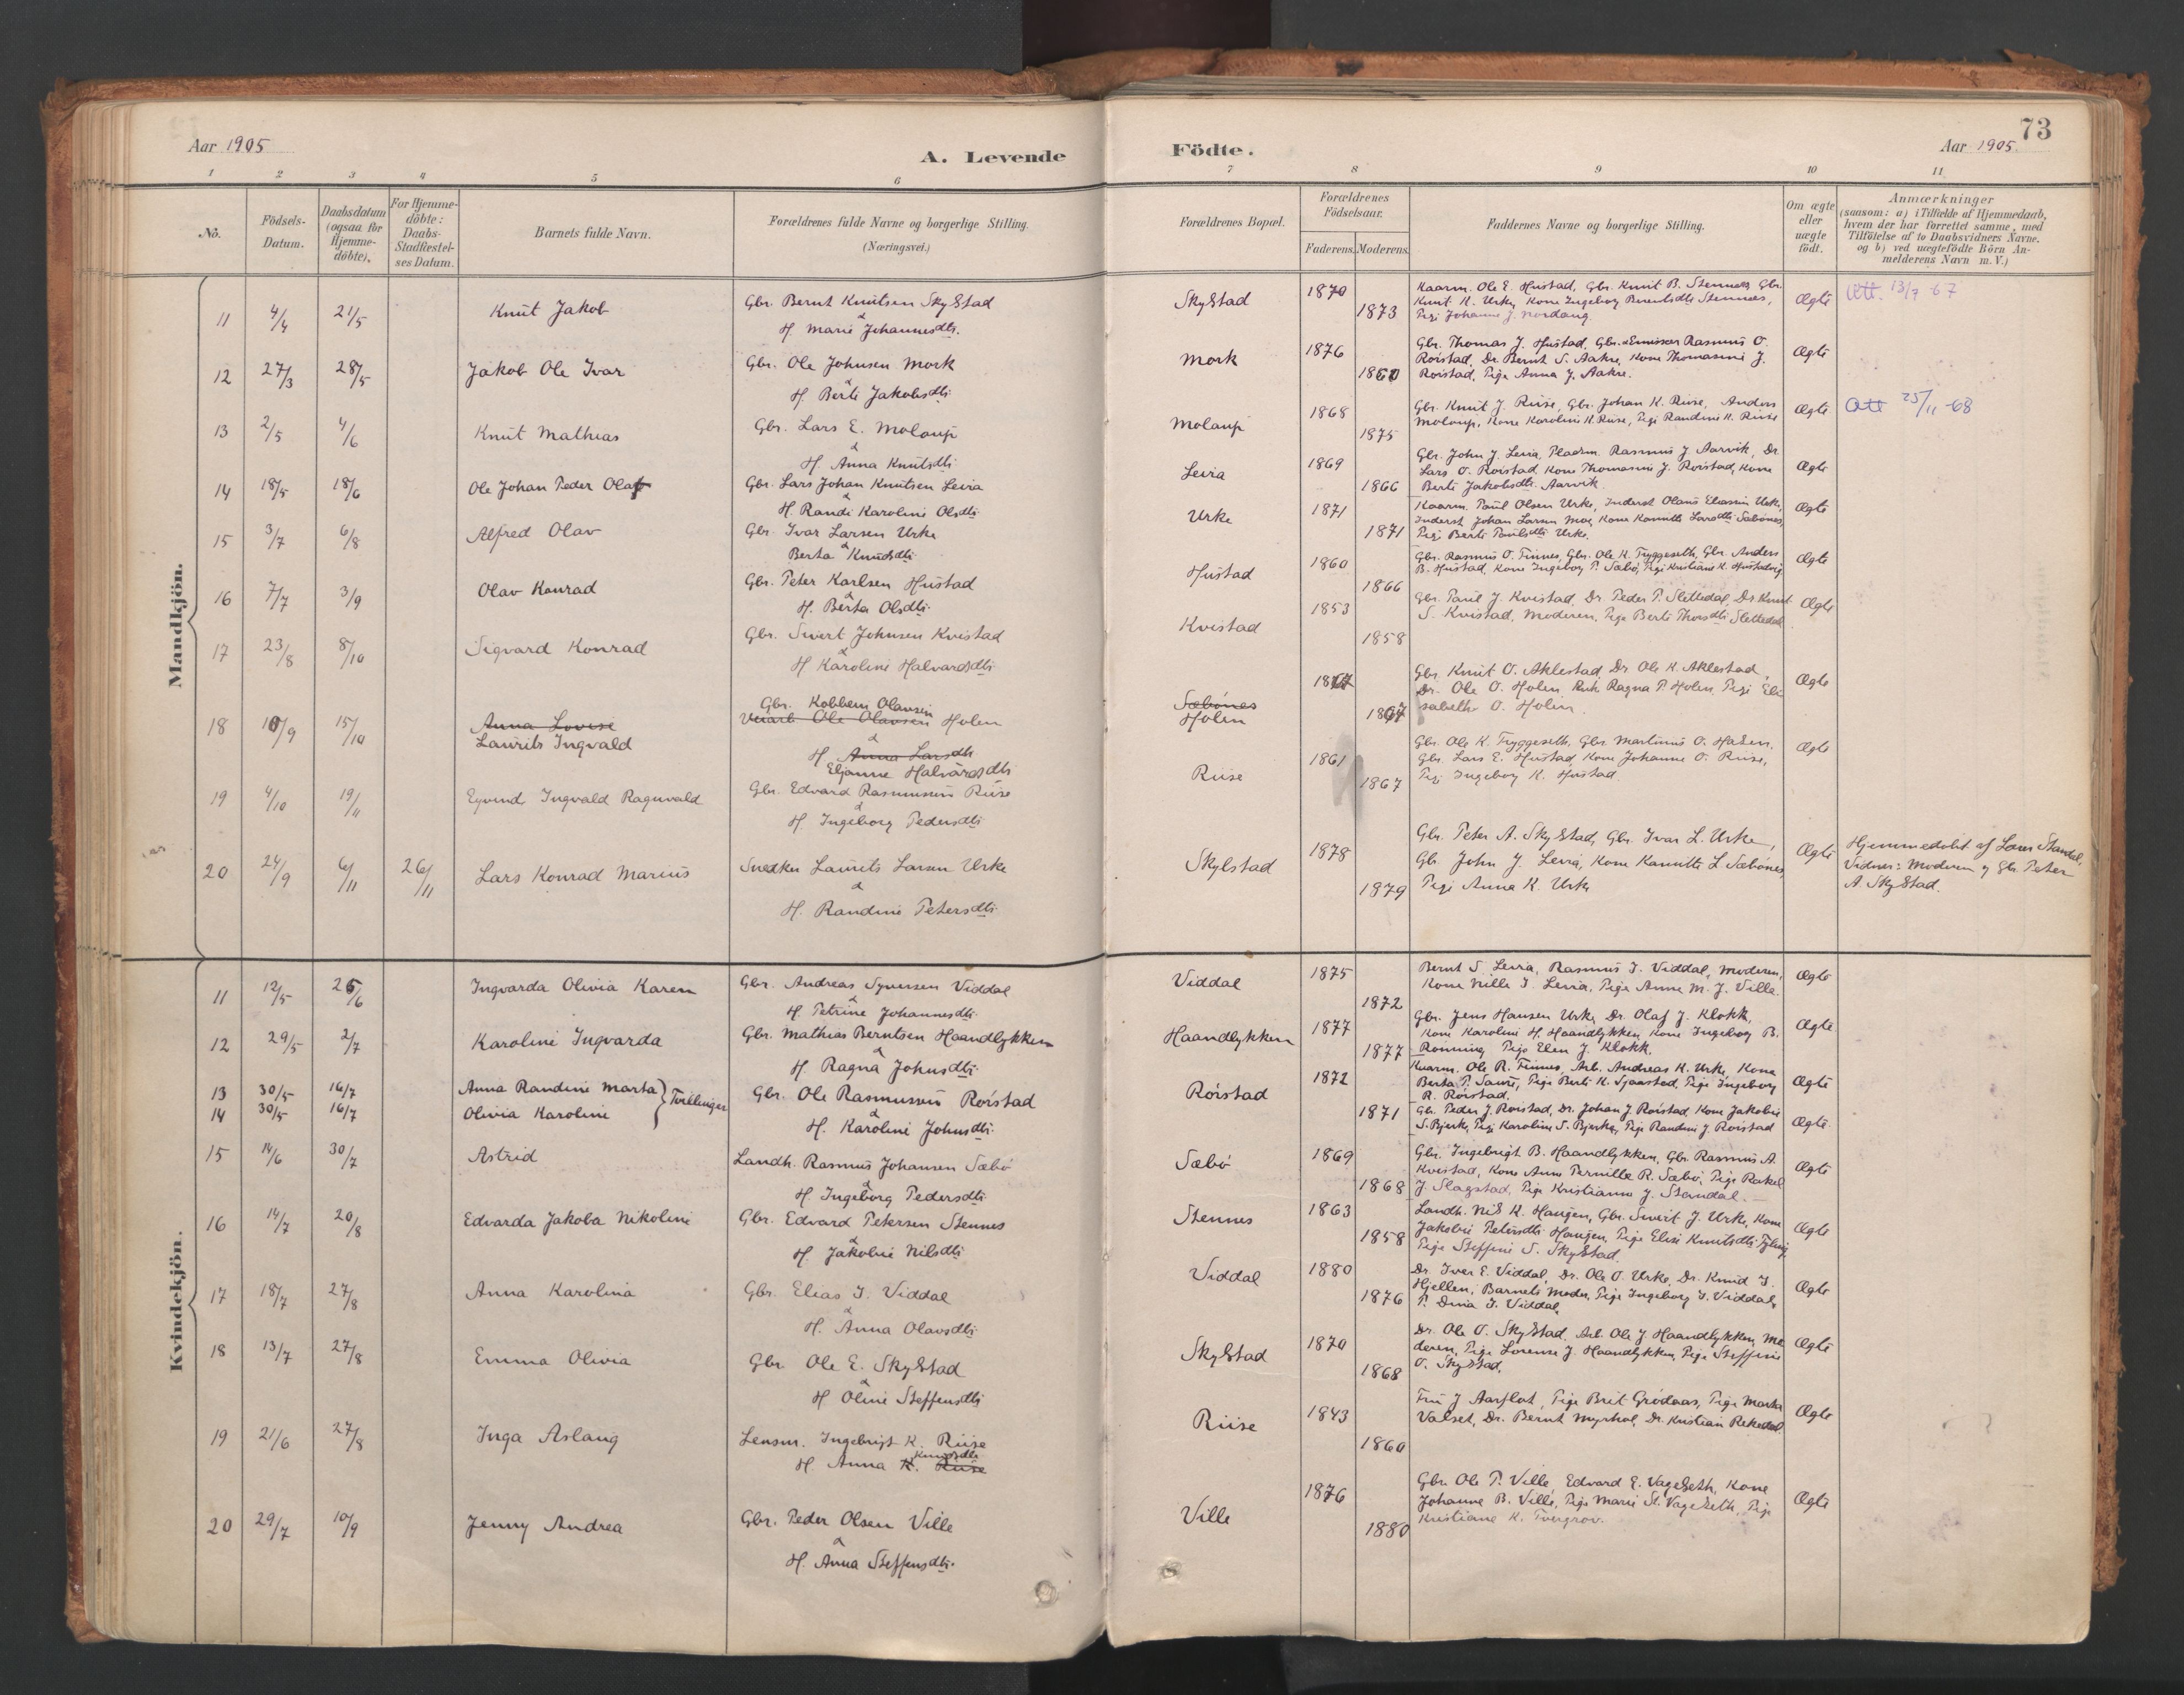 73
Aar 1905
A. Levende
Födte.
Aar 1905.
1 2 3 4 5 6 7 8 9 10 11
No.
Födsels-
Datum.
Daabsdatum
(ogsaa for
Hjemme-
döbte).
For Hjemme-
döbte:
Daabs-
Stadfæstel-
ses Datum.
Barnets fulde Navn.
Forældrenes fulde Navne og borgerlige Stilling.
(Næringsvei.)
Forældrenes Bopæl.
Forældrenes
Födselsaar.
Faderens.
Moderens.
Faddernes Navne og borgerlige Stilling.
Om ægte
eller
uægte
födt.
Anmærkninger
(saasom: a) i Tilfælde af Hjemmedaab,
hvem der har forrettet samme, med
Tilföielse af to Daabsvidners Navne.
og b) ved uægtefödte Börn An-
melderens Navn m. V.)
Mandkjön.
11 4/4 21/5 Knut Jakob
Gbr. Bernt Knutsen Skylstad
&
H. Marie Johannesdtr.
Skylstad 1870 1873
Kaarm. Ole E. Hustad, Gbr. Knut B. Stennes, Gbr.
Knut K. Urke, Kone Ingeborg Berntsdtr Stennes,
Pige Johanne J. Nordang.
Ægte
Att. 13/7 67
12 27/3 28/5 Jakob Ole Ivar
Gbr. Ole Johnsen Mork
&
H. Berte Jakobsdtr.
Mork 1876 1860
Gbr. Thomas J. Hustad, Gbr. Emissær Rasmus O.
Rørstad, Dr. Bernt S. Aakre, Kone Thomasine J.
Rørstad, Pige Anna J. Aakre.
Ægte
13 2/5 4/6 Knut Mathias
Gbr. Lars E. Molaup
&
H. Anna Knutsdtr.
Molaup 1868 1875
Gbr. Knut J. Riise, Gbr. Johan K. Riise, Anders
Molaup, Kone Karoline K. Riise, Pige Randine K. Riise
Ægte
Att 25/11 -68
14 18/5 18/6 Ole Johan Peder Olaf
Gbr. Lars Johan Knutsen Leira
&
H. Randi Karoline Olsdtr.
Leira 1869 1866
Gbr. John J. Leira, Pladsm. Rasmus J. Aarvik, Dr.
Lars O. Rørstad, Kone Thomasine J. Rørstad, Kone
Berte Jakobsdtr. Aarvik.
Ægte
15 3/7 6/8 Alfred Olav
Gbr. Ivar Larsen Urke
&
Berta Knudsdtr.
Urke 1871 1871
Kaarm. Paul Olsen Urke, Inderst Olaus Eliassen Urke,
Inderst Johan Larsen Moe, Kone Kanutte Larsdtr Sæbönes,
Pige Berte Paulsdtr Urke.
Ægte
16 7/7 3/9 Olav Konrad
Gbr. Peter Karlsen Hustad
&
H. Berta Olsdtr.
Hustad 1860 1866
Gbr. Rasmus O. Finnes, Gbr. Ole K. Tryggeseth, Gbr. Anders
B. Hustad, Kone Ingeborg P. Sæbö, Pige Kristiane K. Hustadvig
Ægte
17 23/8 8/10 Sigvard Konrad
Gbr. Sivert Johnsen Kvistad
&
H Karoline Halvardsdtr.
Kvistad 1853 1858
Gbr. Paul J. Kvistad, Dr. Peder P. Slettedal, Dr Knut
S. Kvistad, Moderen, Pige Berte Thorsdtr Slettedal
Ægte
18 10/9 15/10 Anna Lovise
Laurits Ingvald
Gbr. Kobbein Olavsen
Ole Olavsen Holen
&
H. Anna Larsdtr
Eljanne Halvardsdtr
Sæbönes
Holen 1867 1867
Gbr. Knut O. Aklestad, Dr. Ole K. Aklestad,
Dr. Ole O. Holen, Ragna P. Holen, Pige Eli-
sabeth O. Holen.
Ægte
19 4/10 19/11 Eyvind Ingvald Ragnvald
Gbr. Edvard Rasmussen Riise
&
H. Ingeborg Pedersdtr.
Riise 1861 1867
Gbr. Ole K. Tryggeseth, Gbr. Martinus O. Hasen,
Gbr. Lars E. Hustad, Kone Johanne O. Riise,
Pige Ingeborg K. Hustad.
Ægte
20 24/9 6/11 26/11 Lars Konrad Marius
Snedker Laurits Larsen Urke
&
H. Randine Petersdtr.
Skylstad 1878 1879
Gbr. Peter A. Skylstad, Gbr. Ivar L. Urke,
Gb. John J. Leira, Kone Kanutte L Sæbönes,
Pige Anna K. Urke
Ægte
Hjemmedöbt af Lærer Standal,
Vidner: Moderen og Gbr. Peter
A. Skylstad.
Kvindekjön.
11 12/5 25/6 Ingvarda Olivia Karen
Gbr. Andreas Syversen Viddal
&
H. Petrine Johannesdtr.
Viddal 1875 1872
Bernt S. Leira, Rasmus I. Viddal, Moderen,
Kone Nille I. Leira, Pige Anne M. J. Ville.
Ægte
12 29/5 2/7 Karoline Ingvarda
Gbr. Mathias Berntsen Haandlykken
&
H. Ragna Johnsdtr.
Haandlykken 1877 1877
Gbr. Jens Hansen Urke, Dr. Olaf J. Klokk,
Kone Karoline H. Haandlykken, Kone Ingeborg B.
Rönning, Pige Elen J. Klokk.
Ægte
13 30/5 16/7 Anna Randine Marta
14 30/5 16/7 Olivia Karoline
Tvillinger
Gbr. Ole Rasmussen Rörstad
&
H. Karoline Johnsdtr.
Rörstad 1872 1871
Kaarm. Ole R. Finnes, Arb. Andreas K. Urke, Kone
Berta P. Saure, Pige Berte K. Sjaastad, Pige Ingeborg
R. Rörstad.
Ægte
Gb. Peder J. Rörstad, Dr. Johan J. Rörstad, Kone Jakobie
S. Bjerk, Pige Karoline S. Bjerke, Pige Randine J. Rörstad
Ægte
15 14/6 30/7 Astrid
Landh. Rasmus Johansen Sæbö
&
H. Ingeborg Pedersdtr.
Sæbö 1869 1868
Gbr. Ingebrigt B. Haandlykken, Gbr. Rasmus A.
Kvistad, Kone Anne Pernille R. Sæbö, Pige Rakel
J. Slagstad, Pige Kristianne J. Standal.
Ægte
16 14/7 20/8 Edvarda Jakoba Nikoline
Gbr. Edvard Petersen Stennes
&
H. Jakobie Nilsdtr.
Stennes 1863 1858
Landh. Nils K. Haugen, Gbr. Sivert J. Urke, Kone
Jakobie Petersdtr Haugen, Pige Elise Knutsdtr
Pige Steffine S. Skylstad.
Ægte
17 18/7 27/8 Anna Karolina
Gbr. Elias I. Viddal
&
H. Anna Olavsdtr.
Viddal 1880 1876
Dr. Iver E. Viddal, Dr. Ole O. Urke, Dr. Knud I.
Hjellen, Barnets Moder, Pige Ingeborg I. Viddal,
P. Dina I. Viddal.
Ægte
18 13/7 27/8 Emma Olivia
Gbr Ole E. Skylstad
&
H Oline Steffensdtr
Skylstad 1870 1868
Dr. Ole O. Skylstad, Arb. Ole J. Haandlykken, Mo-
deren, Pige Lorense J. Haandlykken, Pige Steffine
O. Skylstad.
Ægte
19 21/6 27/8 Inga Aslaug
Lensm. Ingebrigt K. Riise
Knudsdtr
H. Anna K. Riise
Riise 1843 1860
Fru J Aarflot, Pige Brit Grödaas, Pige Marta
Valset, Dr. Bernt Myrhol, Dr. Kristian Rekedal
Ægte
20 29/7 10/9 Jenny Andrea
Gbr. Peder Olsen Ville
&
H. Anna Steffensdtr.
Ville 1876 1880
Gbr. Ole P. Ville, Edvard E. Vageseth, Kone
Johanne B. Ville, Pige Marie St. Vageseth, Pige
Kristiane K. Tvergrov.
Ægte